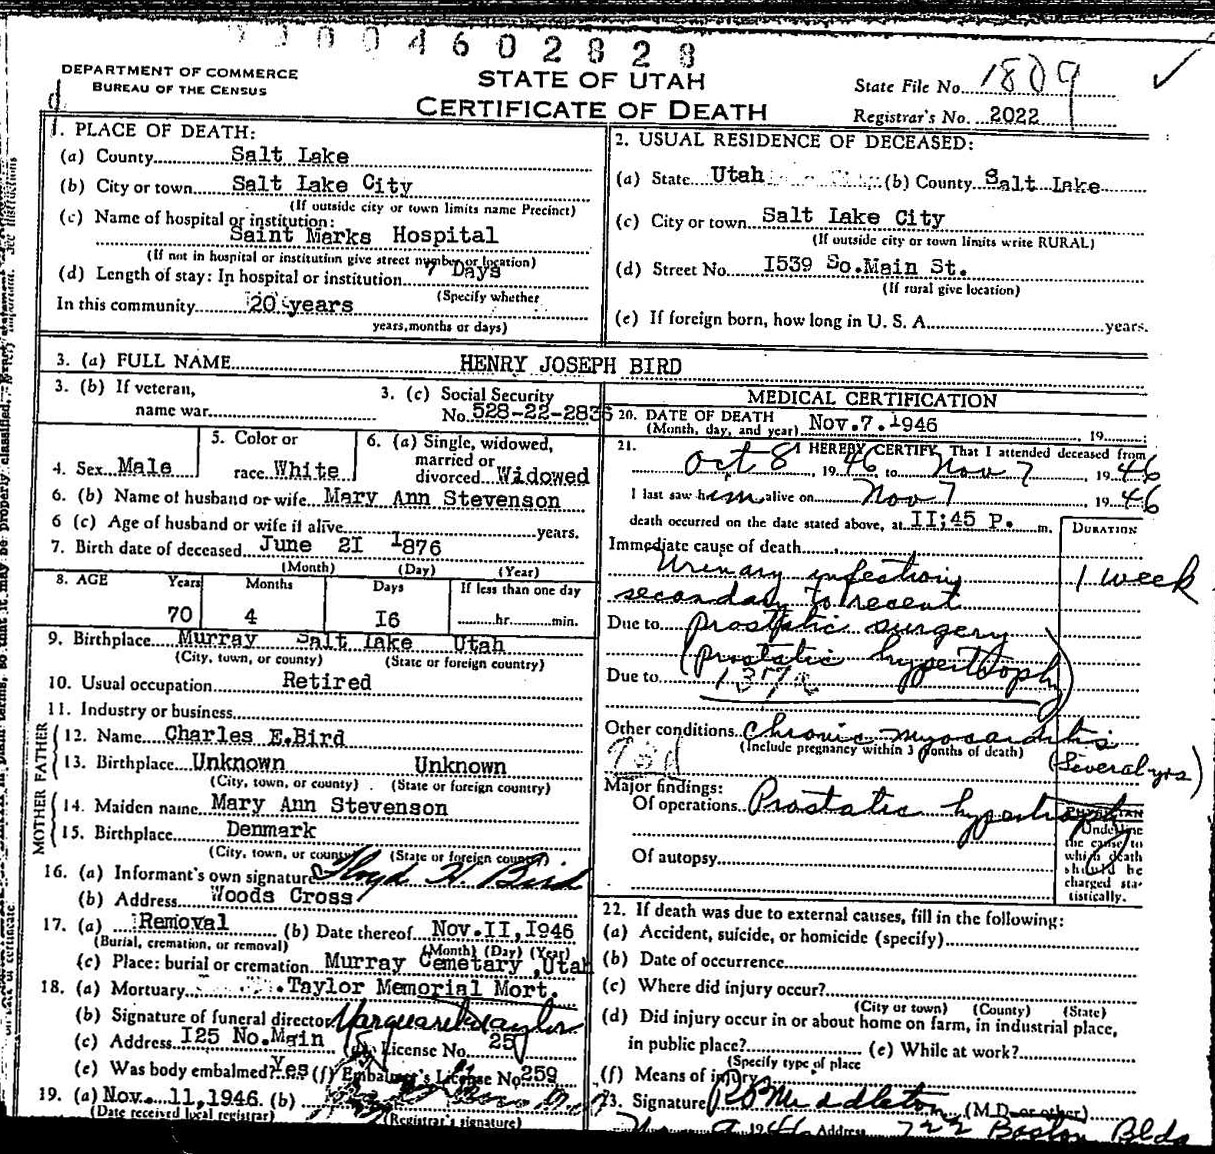 0004602828
DEPARTMENT OF COMMERCE
BUREAU OF THE CENSUS
STATE OF UTAH
CERTIFICATE OF DEATH
State File No. 1809
Registrar's No. 2022
1. PLACE OF DEATH:
(a) County Salt Lake
(b) City or town Salt Lake City
(If outside city or town limits name Precinct)
(c) Name of hospital or institution:
Saint Marks Hospital
(If not in hospital or institution give street number or location)
(d) Length of stay: In hospital or institution 7 Days
(Specify whether
In this community 20 years
years, months or days)
2. USUAL RESIDENCE OF DECEASED:
(a) State Utah (b) County Salt Lake
(c) City or town Salt Lake City
(If outside city or town limits write RURAL)
(d) Street No. I539 So.Main St.
(If rural give location)
(e) If foreign born, how long in U. S. A. years.
3. (a) FULL NAME HENRY JOSEPH BIRD
3. (b) If veteran,
name war
3. (c) Social Security
No. 528-22-2836
4. Sex Male
5. Color or
race White
6. (a) Single, widowed,
married or
divorced Widowed
6. (b) Name of husband or wife Mary Ann Stevenson
6 (c) Age of husband or wife if alive years.
7. Birth date of deceased June 2I 1876
(Month) (Day) (Year)
8. AGE Years Months Days If less than one day
70 4 I6 hr. min.
9. Birthplace Murray Salt Lake Utah
(City, town, or county) (State or foreign country)
10. Usual occupation Retired
11. Industry or business
FATHER
12. Name Charles E.Bird
13. Birthplace Unknown Unknown
(City, town, or county) (State or foreign country)
MOTHER
14. Maiden name Mary Ann Stevenson
15. Birthplace Denmark
(City, town, or county) (State or foreign country)
16. (a) Informant's own signature Floyd H. Bird
(b) Address Woods Cross
17. (a) Removal (b) Date thereof Nov.II,I946
(Burial, cremation, or removal) (Month) (Day) (Year)
(c) Place: burial or cremation Murray Cemetary ,Utah
18. (a) Mortuary Taylor Memorial Mort.
(b) Signature of funeral director Marguerite Taylor
(c) Address I25 No.Main (d) License No. 25
(e) Was body embalmed? Yes (f) Embalmer's License No 259
19. (a) Nov. 11,1946. (b)
(Date received local registrar) (Registrar's signature)
MEDICAL CERTIFICATION
20. DATE OF DEATH
(Month, day, and year) Nov.7.1946 , 19
21. I HEREBY CERTIFY, That I attended deceased from
Oct 8, 1946 to Nov 7, 1946
I last saw him alive on Nov 7 1946
death occurred on the date stated above, at II;45 P. m.
DURATION
Immediate cause of death
Urinary infection 1 week
secondary to recent
Due to prostatic surgery
(prostatic hypertrophy)
Due to 137a
Other conditions Chronic myocarditis
(Include pregnancy within 3 months of death)
(Several yrs)
93d
Major findings:
Of operations Prostatic hypertrophy
Of autopsy
PHYSICIAN
Underline
the cause to
which death
should be
charged sta-
tistically.
22. If death was due to external causes, fill in the following:
(a) Accident, suicide, or homicide (specify)
(b) Date of occurrence
(c) Where did injury occur?
(City or town) (County) (State)
(d) Did injury occur in or about home on farm, in industrial place,
in public place? (e) While at work?
(Specify type of place
(f) Means of injury
23. Signature R O Middleton (M.D. or other)
Nov 9 1946 Address 722 Boston Bldg